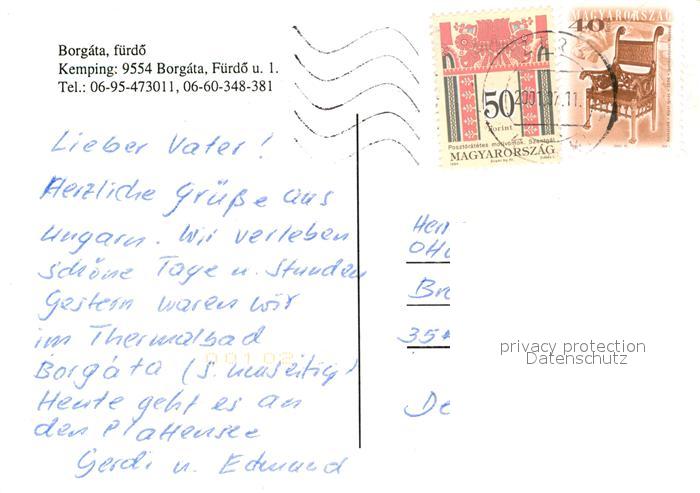 Borgáta, fürdő
Kemping: 9554 Borgáta, Fürdő u. 1.
Tel.: 06-95-473011, 06-60-348-381
50
Forint
Posztórátétes motívumok. Szentgál
MAGYARORSZÁG
40
MAGYARORSZÁG
2001.07.11.
Lieber Vater!
Herzliche Grüße aus
Ungarn. Wir verleben
schöne Tage u. Stunden
Gestern waren wir
im Thermalbad
Borgáta (s. umseitig)
Heute geht es an
den Plattensee
Gerdi u. Edmund
Her
Ott
Bre
35
De
privacy protection
Datenschutz